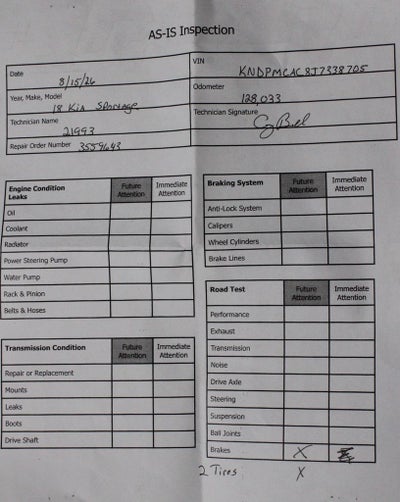 AS-IS Inspection
Date 8/15/26
VIN KNDPMCAC8J7338705
Year, Make, Model 18 Kia Sportage
Odometer 128,033
Technician Name 21993
Technician Signature
Repair Order Number 3559643
Engine Condition Future Attention Immediate Attention
Leaks
Oil
Coolant
Radiator
Power Steering Pump
Water Pump
Rack & Pinion
Belts & Hoses
Transmission Condition Future Attention Immediate Attention
Repair or Replacement
Mounts
Leaks
Boots
Drive Shaft
Braking System Future Attention Immediate Attention
Anti-Lock System
Calipers
Wheel Cylinders
Brake Lines
Road Test Future Attention Immediate Attention
Performance
Exhaust
Transmission
Noise
Drive Axle
Steering
Suspension
Ball Joints
Brakes X
2 Tires X